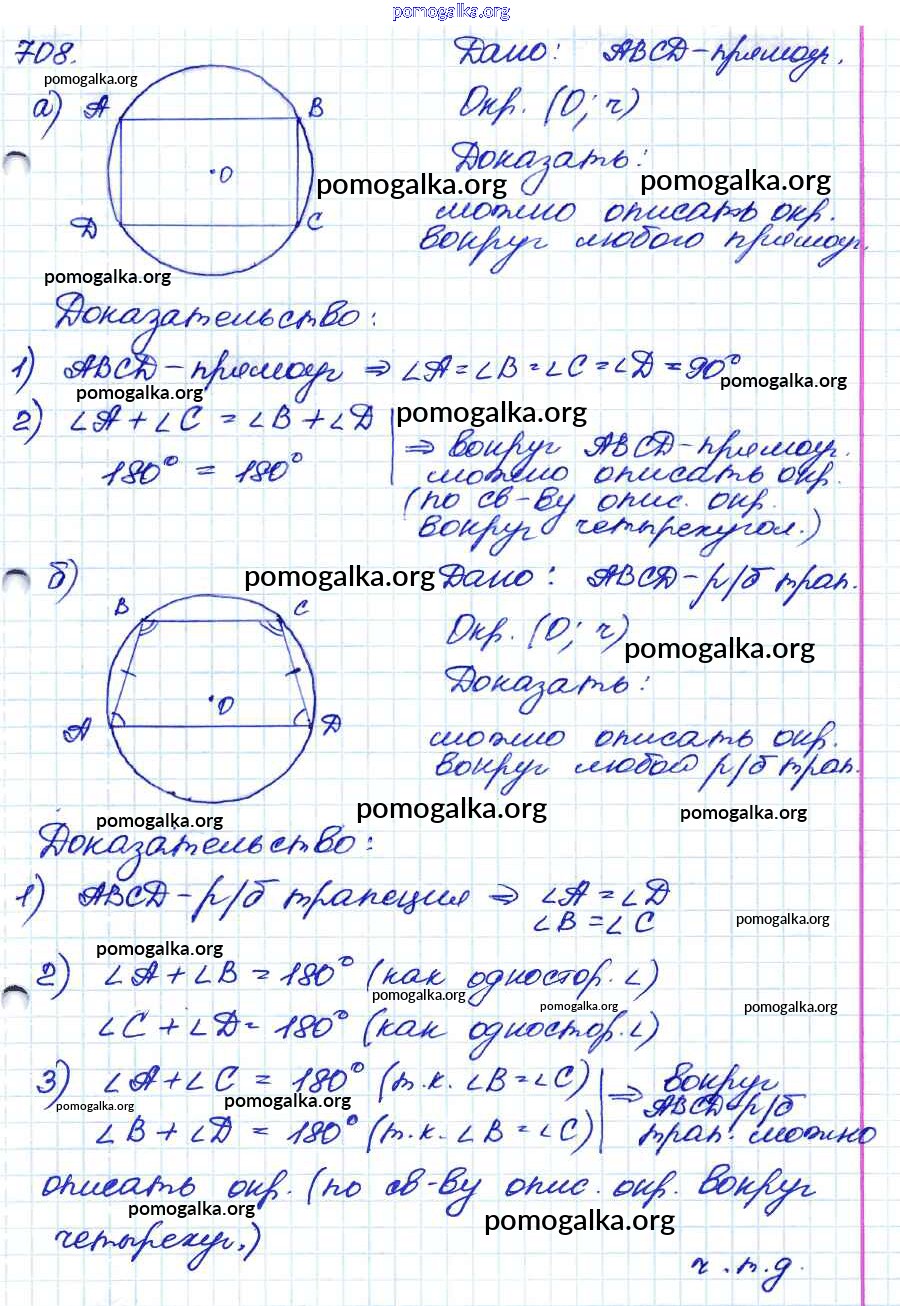 pomogalka.org
708.
pomogalka.org
а) A B
O
D C
Дано: ABCD - прямоуг.
Окр. (O; r)
Доказать:
pomogalka.org pomogalka.org
можно описать окр.
вокруг любого прямоуг.
pomogalka.org
Доказательство:
1) ABCD - прямоуг ⇒ ∠A = ∠B = ∠C = ∠D = 90°
pomogalka.org pomogalka.org
2) ∠A + ∠C = ∠B + ∠D
180° = 180°
pomogalka.org
⇒ вокруг ABCD - прямоуг.
можно описать окр.
(по св-ву опис. окр.
вокруг четырехугол.)
б) pomogalka.org
B C
O
A D
Дано: ABCD - р/б трап.
Окр. (O; r)
pomogalka.org
Доказать:
можно описать окр.
вокруг любой р/б трап.
pomogalka.org pomogalka.org pomogalka.org
Доказательство:
1) ABCD - р/б трапеция ⇒ ∠A = ∠D
∠B = ∠C
pomogalka.org
pomogalka.org
2) ∠A + ∠B = 180° (как одностор. ∠)
pomogalka.org pomogalka.org pomogalka.org
∠C + ∠D = 180° (как одностор. ∠)
3) ∠A + ∠C = 180° (т.к. ∠B = ∠C)
pomogalka.org pomogalka.org
∠B + ∠D = 180° (т.к. ∠B = ∠C)
⇒ вокруг
ABCD - р/б
трап. можно
описать окр. (по св-ву опис. окр. вокруг
pomogalka.org pomogalka.org
четырехуг.)
ч.т.д.